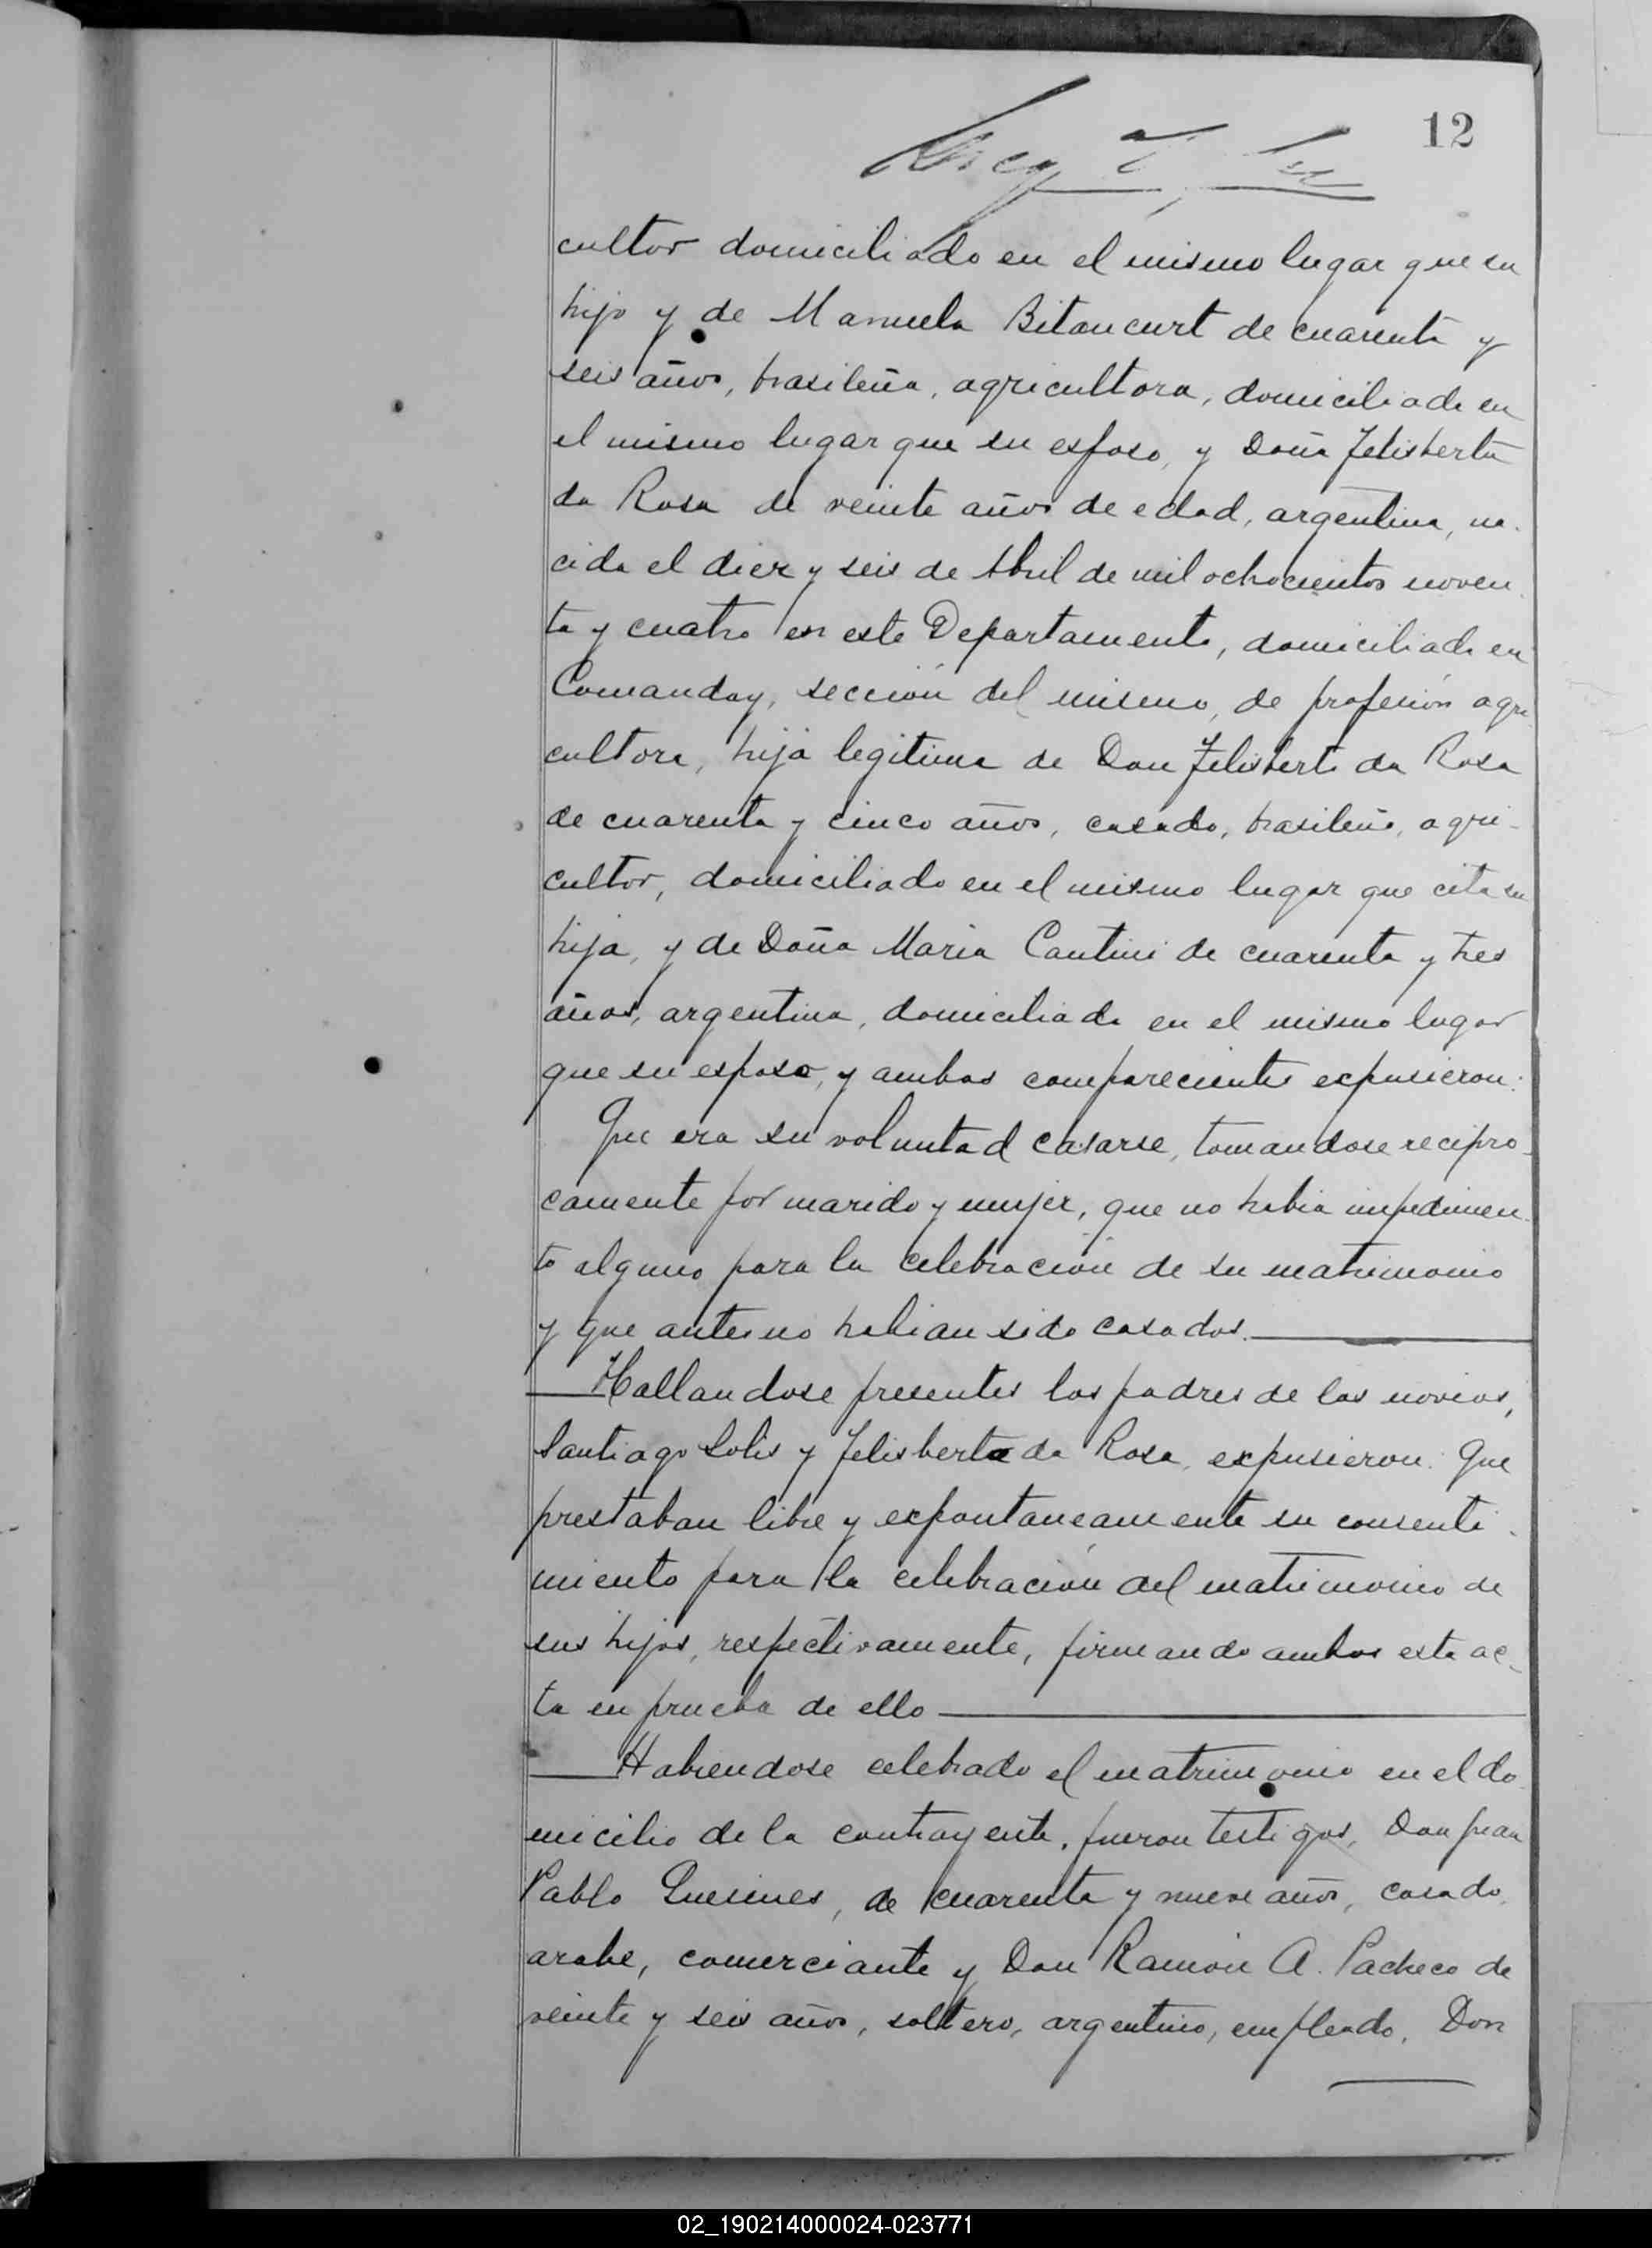 12
cultor domiciliado en el mismo lugar que su
hijo y de Manuela Bitancurt de cuarenta y
seis años, brasileña, agricultora, domiciliada en
el mismo lugar que su esposo, y Doña Felisberta
da Rosa de veinte años de edad, argentina, na-
cida el diez y seis de Abril de mil ochocientos noven-
ta y cuatro en este Departamento, domiciliada en
Comanday, sección del mismo, de profesión agri
cultora, hija legitima de Don Felisberto da Rosa
de cuarenta y cinco años, casado, brasileño, agri-
cultor, domiciliado en el mismo lugar que cita su
hija, y de Doña Maria Cantini de cuarenta y tres
años, argentina, domiciliada en el mismo lugar
que su esposo, y ambos comparecientes expusieron:
Que era su voluntad casarse, tomandose recipro-
camente por marido y mujer, que no habia impedimen-
to alguno para la celebración de su matrimonio
y que antes no habian sido casados.
Hallandose presentes los padres de los novios,
Santiago Solis y Felisberto da Rosa, expusieron: Que
prestaban libre y expontaneamente su consenti-
miento para la celebración del matrimonio de
sus hijos, respectivamente, firmando ambos esta ac-
ta en prueba de ello
Habiendose celebrado el matrimonio en el do-
micilio de la contrayente, fueron testigos, Don Juan
Pablo de cuarenta y nueve años, casado,
arabe, comerciante y Don Ramón A. Pacheco de
veinte y seis años, soltero, argentino, empleado. Don
02_190214000024-023771